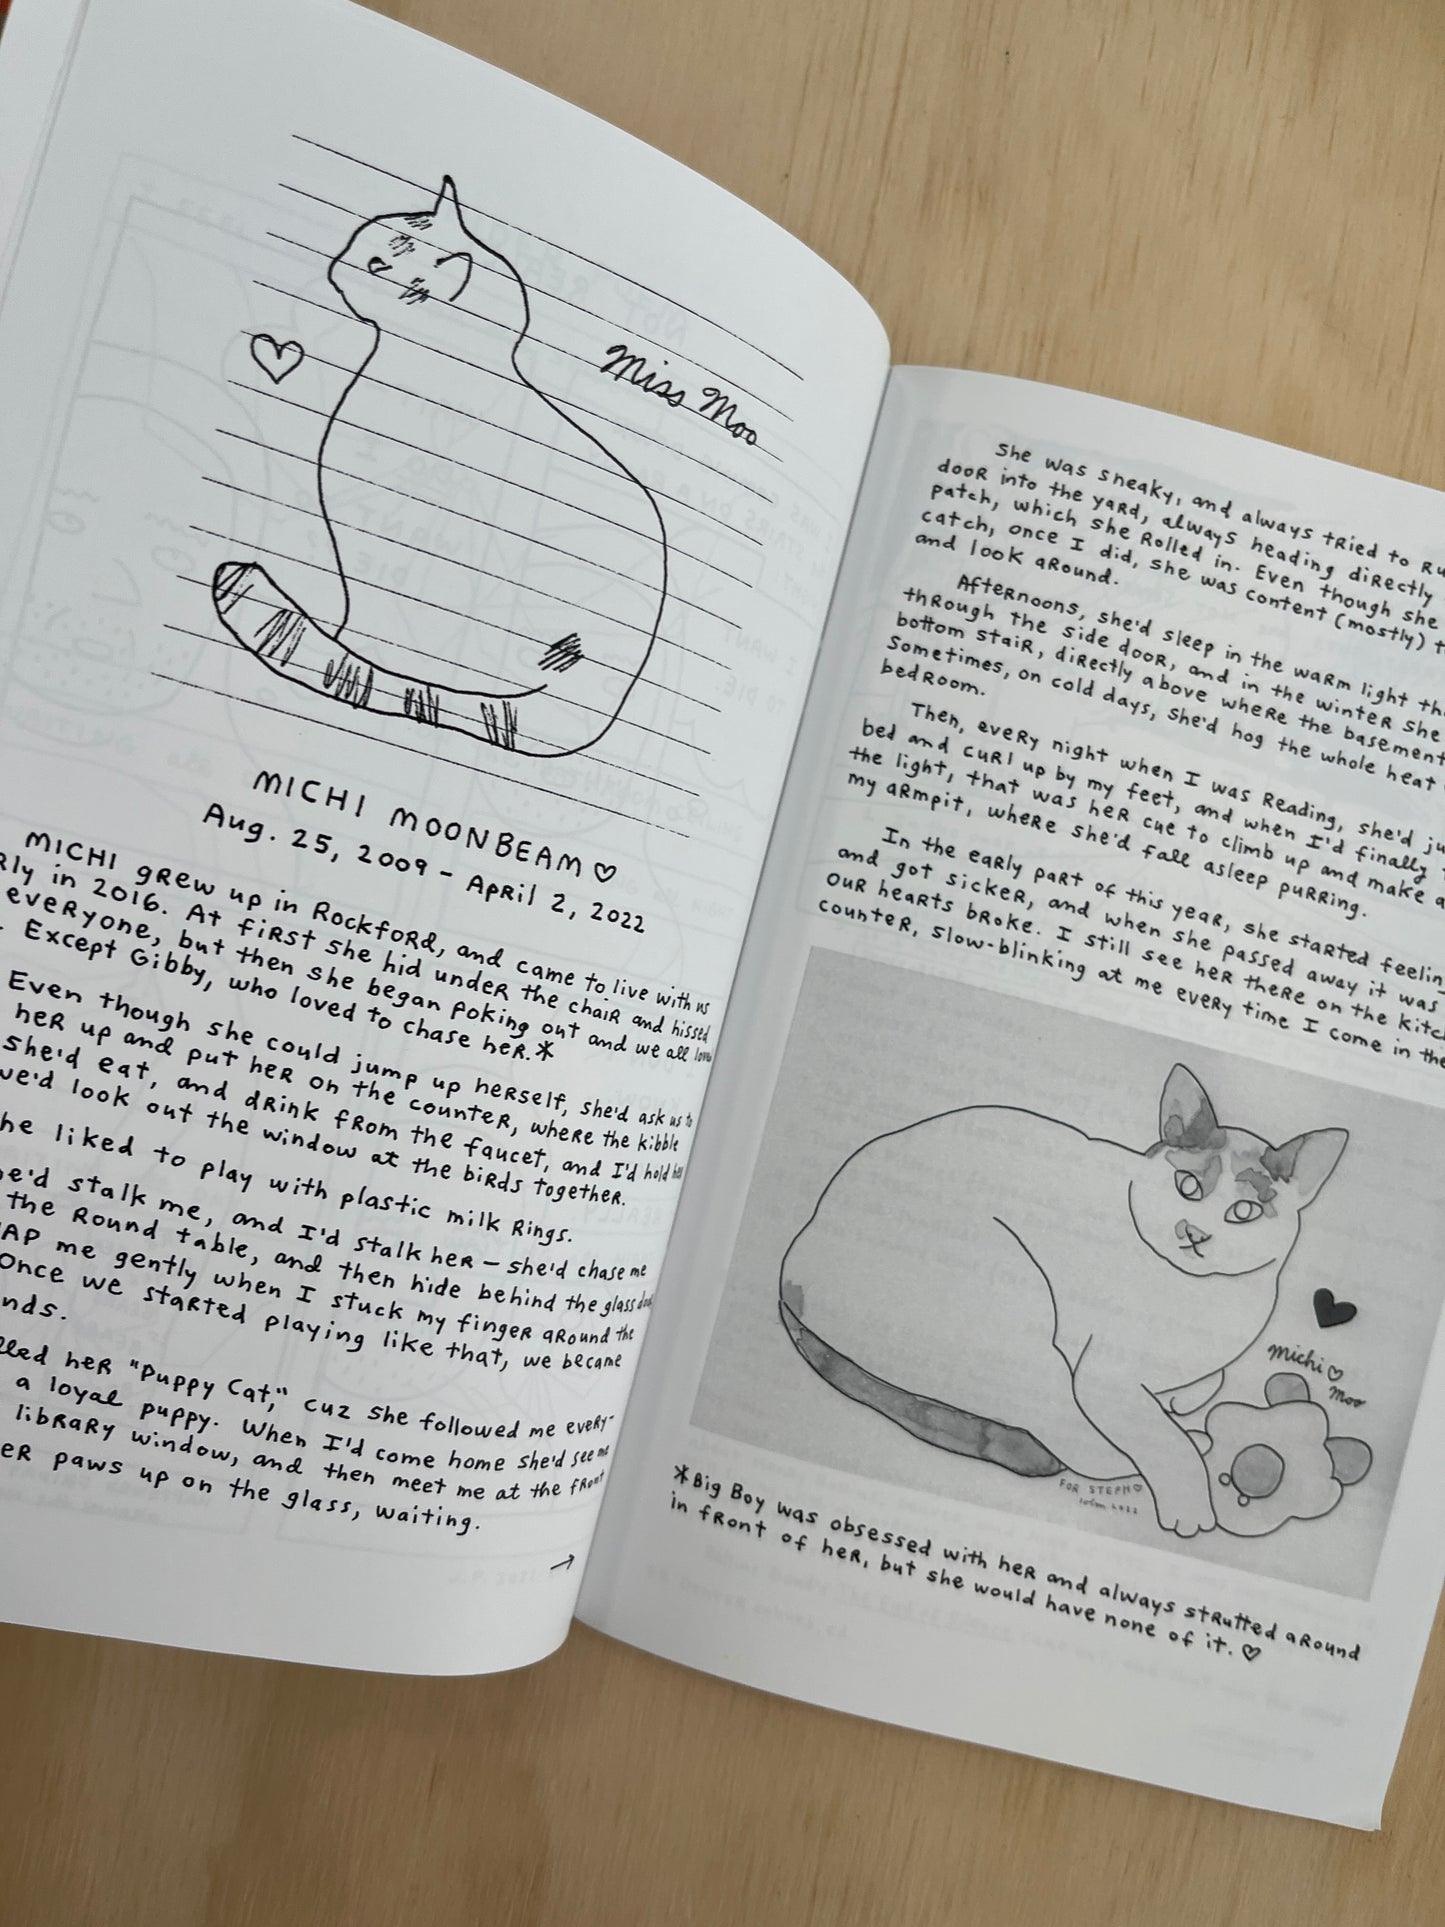 Miss Moo
MICHI MOONBEAM ♡
Aug. 25, 2009 - April 2, 2022
MICHI grew up in Rockford, and came to live with us
in 2016. At first she hid under the chair and hissed
everyone, but then she began poking out and we all
Except Gibby, who loved to chase her.*
Even though she could jump up herself, she'd ask us to
her up and put her on the counter, where the kibble
she'd eat, and drink from the faucet, and I'd hold her
we'd look out the window at the birds together.
liked to play with plastic milk rings.
stalk me, and I'd stalk her — she'd chase me
the round table, and then hide behind the glass
me gently when I stuck my finger around the
Once we started playing like that, we became
her "Puppy Cat," cuz she followed me every-
a loyal puppy. When I'd come home she'd see me
library window, and then meet me at the front
paws up on the glass, waiting.
→
She was sneaky, and always tried to
door into the yard, always heading directly
patch, which she rolled in. Even though she
catch, once I did, she was content (mostly)
and look around.
Afternoons, she'd sleep in the warm light
through the side door, and in the winter she
bottom stair, directly above where the basement
Sometimes, on cold days, she'd hog the whole heat
bedroom.
Then, every night when I was reading, she'd
bed and curl up by my feet, and when I'd finally
the light, that was her cue to climb up and make a
my armpit, where she'd fall asleep purring.
In the early part of this year, she started
and got sicker, and when she passed away it was
our hearts broke. I still see her there on the
counter, slow-blinking at me every time I come in the
Michi ♡
Moo
FOR STEPH ♡
2022
*Big Boy was obsessed with her and always strutted around
in front of her, but she would have none of it. ♡